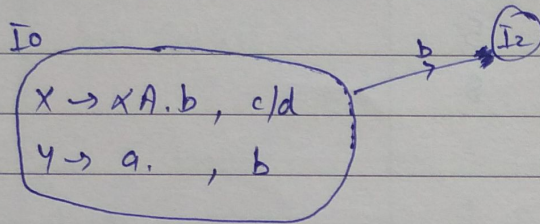 I0
b
I2
X → αA.b, c/d
Y → a. , b